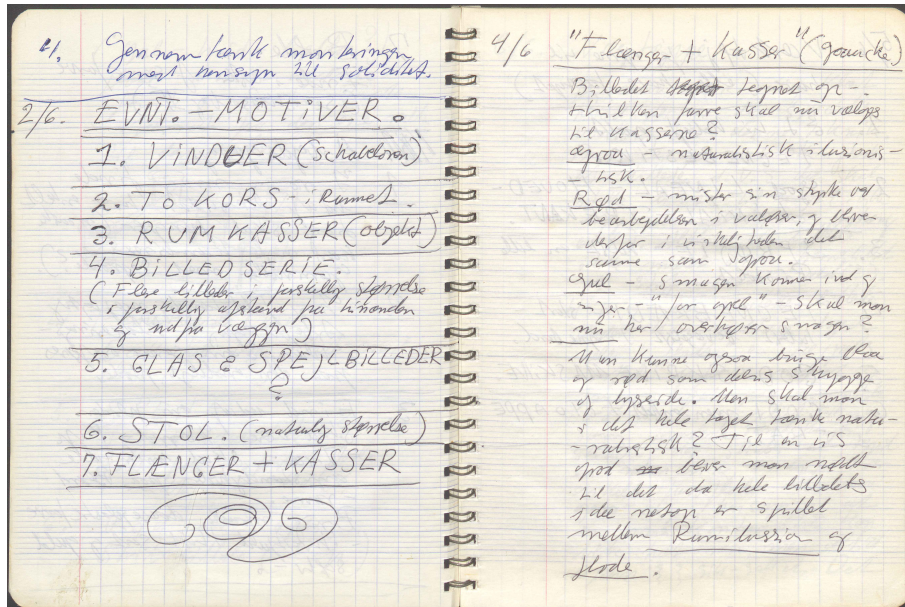 4.
Gennem tænk monteringen
med hensyn til soliditet.
2/6. EVNT. – MOTIVER.
1. VINDUER (Schablon)
2. TO KORS – i Rummet.
3. RUMKASSER (objekt)
4. BILLEDSERIE.
(Flere billeder i forskellig størrelse
i forskellig afstand på hinanden
og ud på væggen)
5. GLAS & SPEJLBILLEDER
?
6. STOL. (naturlig størrelse)
7. FLÆNGER + KASSER
4/6 "Flænger + Kasser" (gouache)
Billedet tegnet op –
Hvilken farve skal nu vælges
til Kasserne?
– naturalistisk ilusionis-
– tisk.
Rød – mister sin styrke ved
bearbejdelsen i valører, og bliver
derfor i virkeligheden det
samme som
gul – smagen kommer ind og
siger – "for gul" – skal man
nu her overhøre smagen?
Man kunne også bruge blå
og rød som deres skygge
og lysside. Men skal man
i det hele taget tænke natu-
– ralistisk? Til en vis
grad bliver man nødt
til det da hele billedets
ide netop er spillet
mellem Rumillusion og
flade.